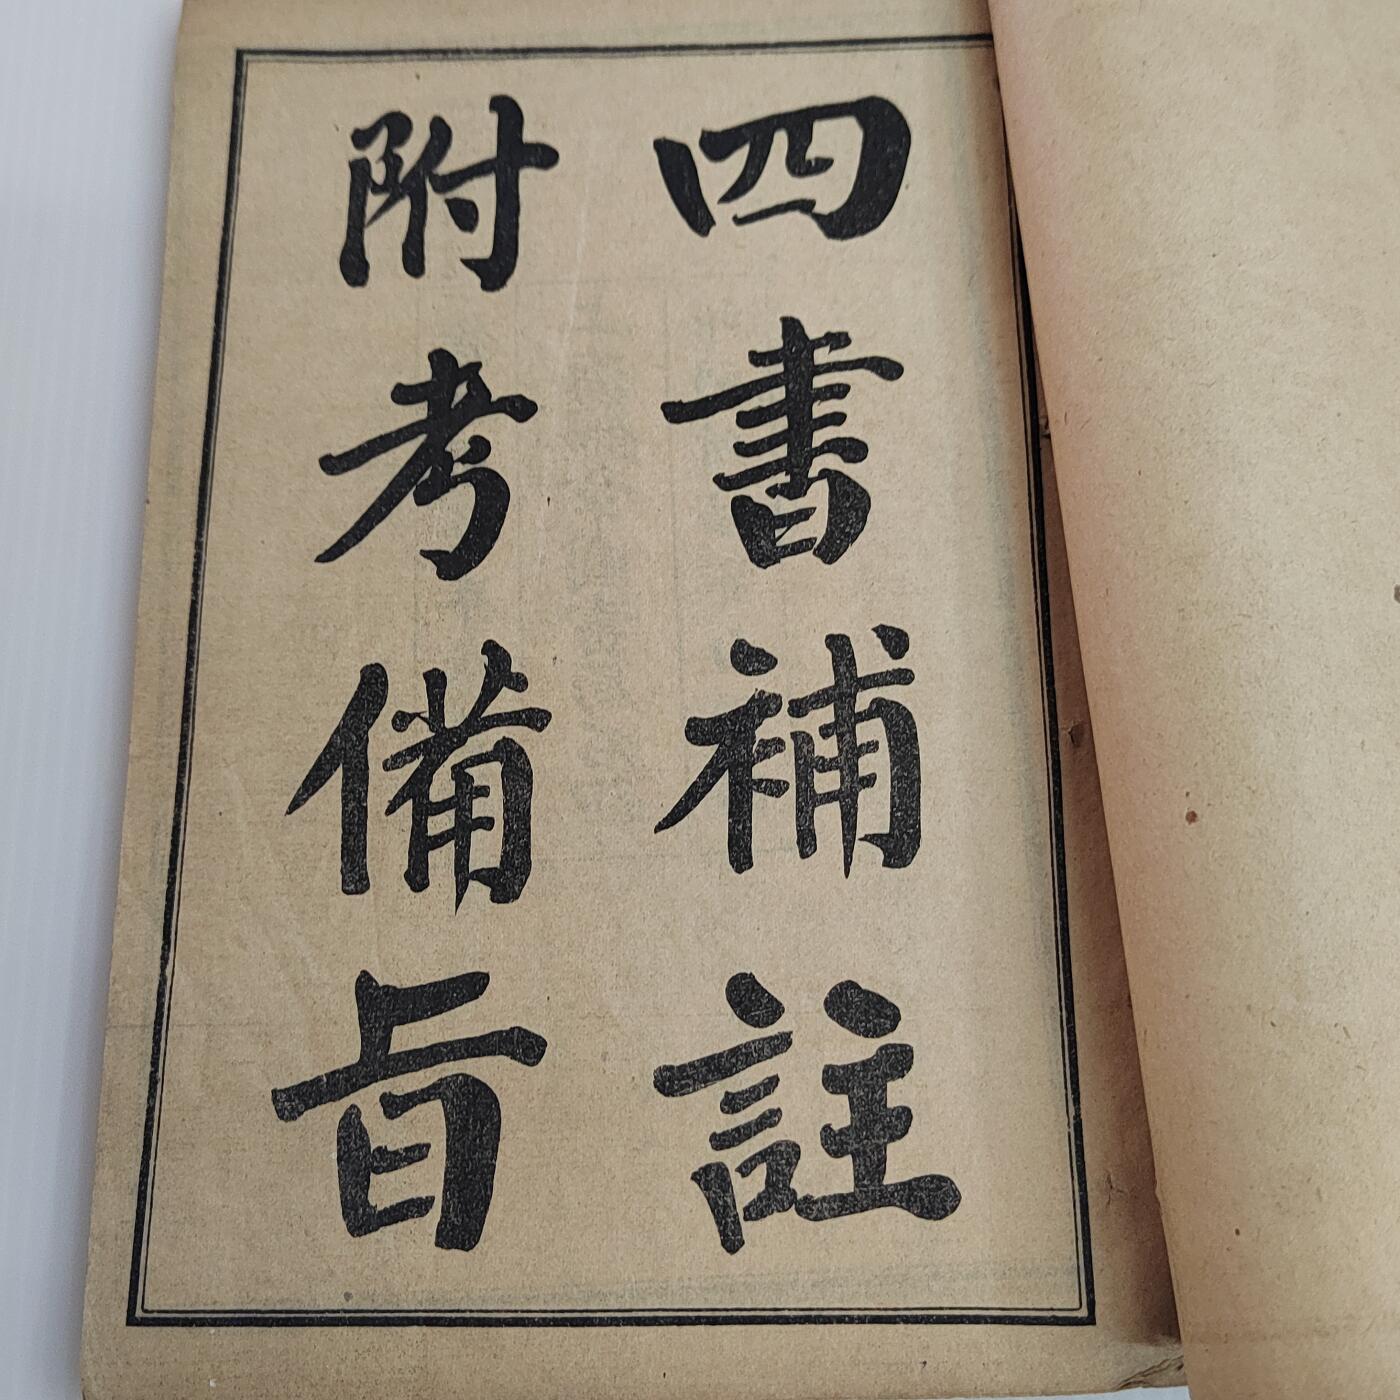 四書補註
附考備旨